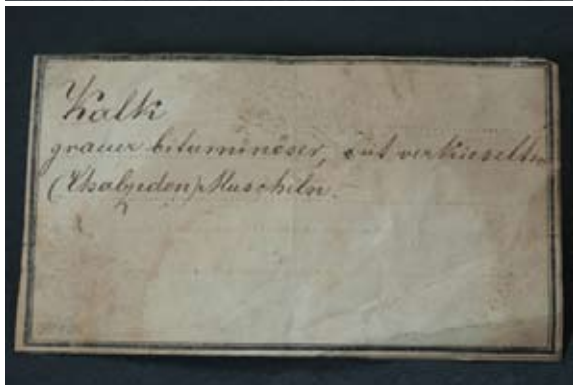 Kalk
grauer bituminöser, mit verkieselten
(Chalzedon) Muscheln.